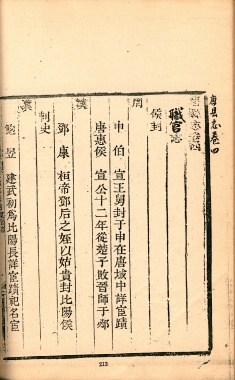 唐县志卷四
唐縣志卷四
職官志
侯封
周
申伯 宣王舅封于申在唐城中詳宦蹟
唐惠侯 宣公十二年從楚子敗晉師于邲
漢
鄧康 桓帝鄧后之姪以姑貴封比陽侯
刺史
漢
鮑昱 建武初爲比陽長詳宦蹟祀名宦
213